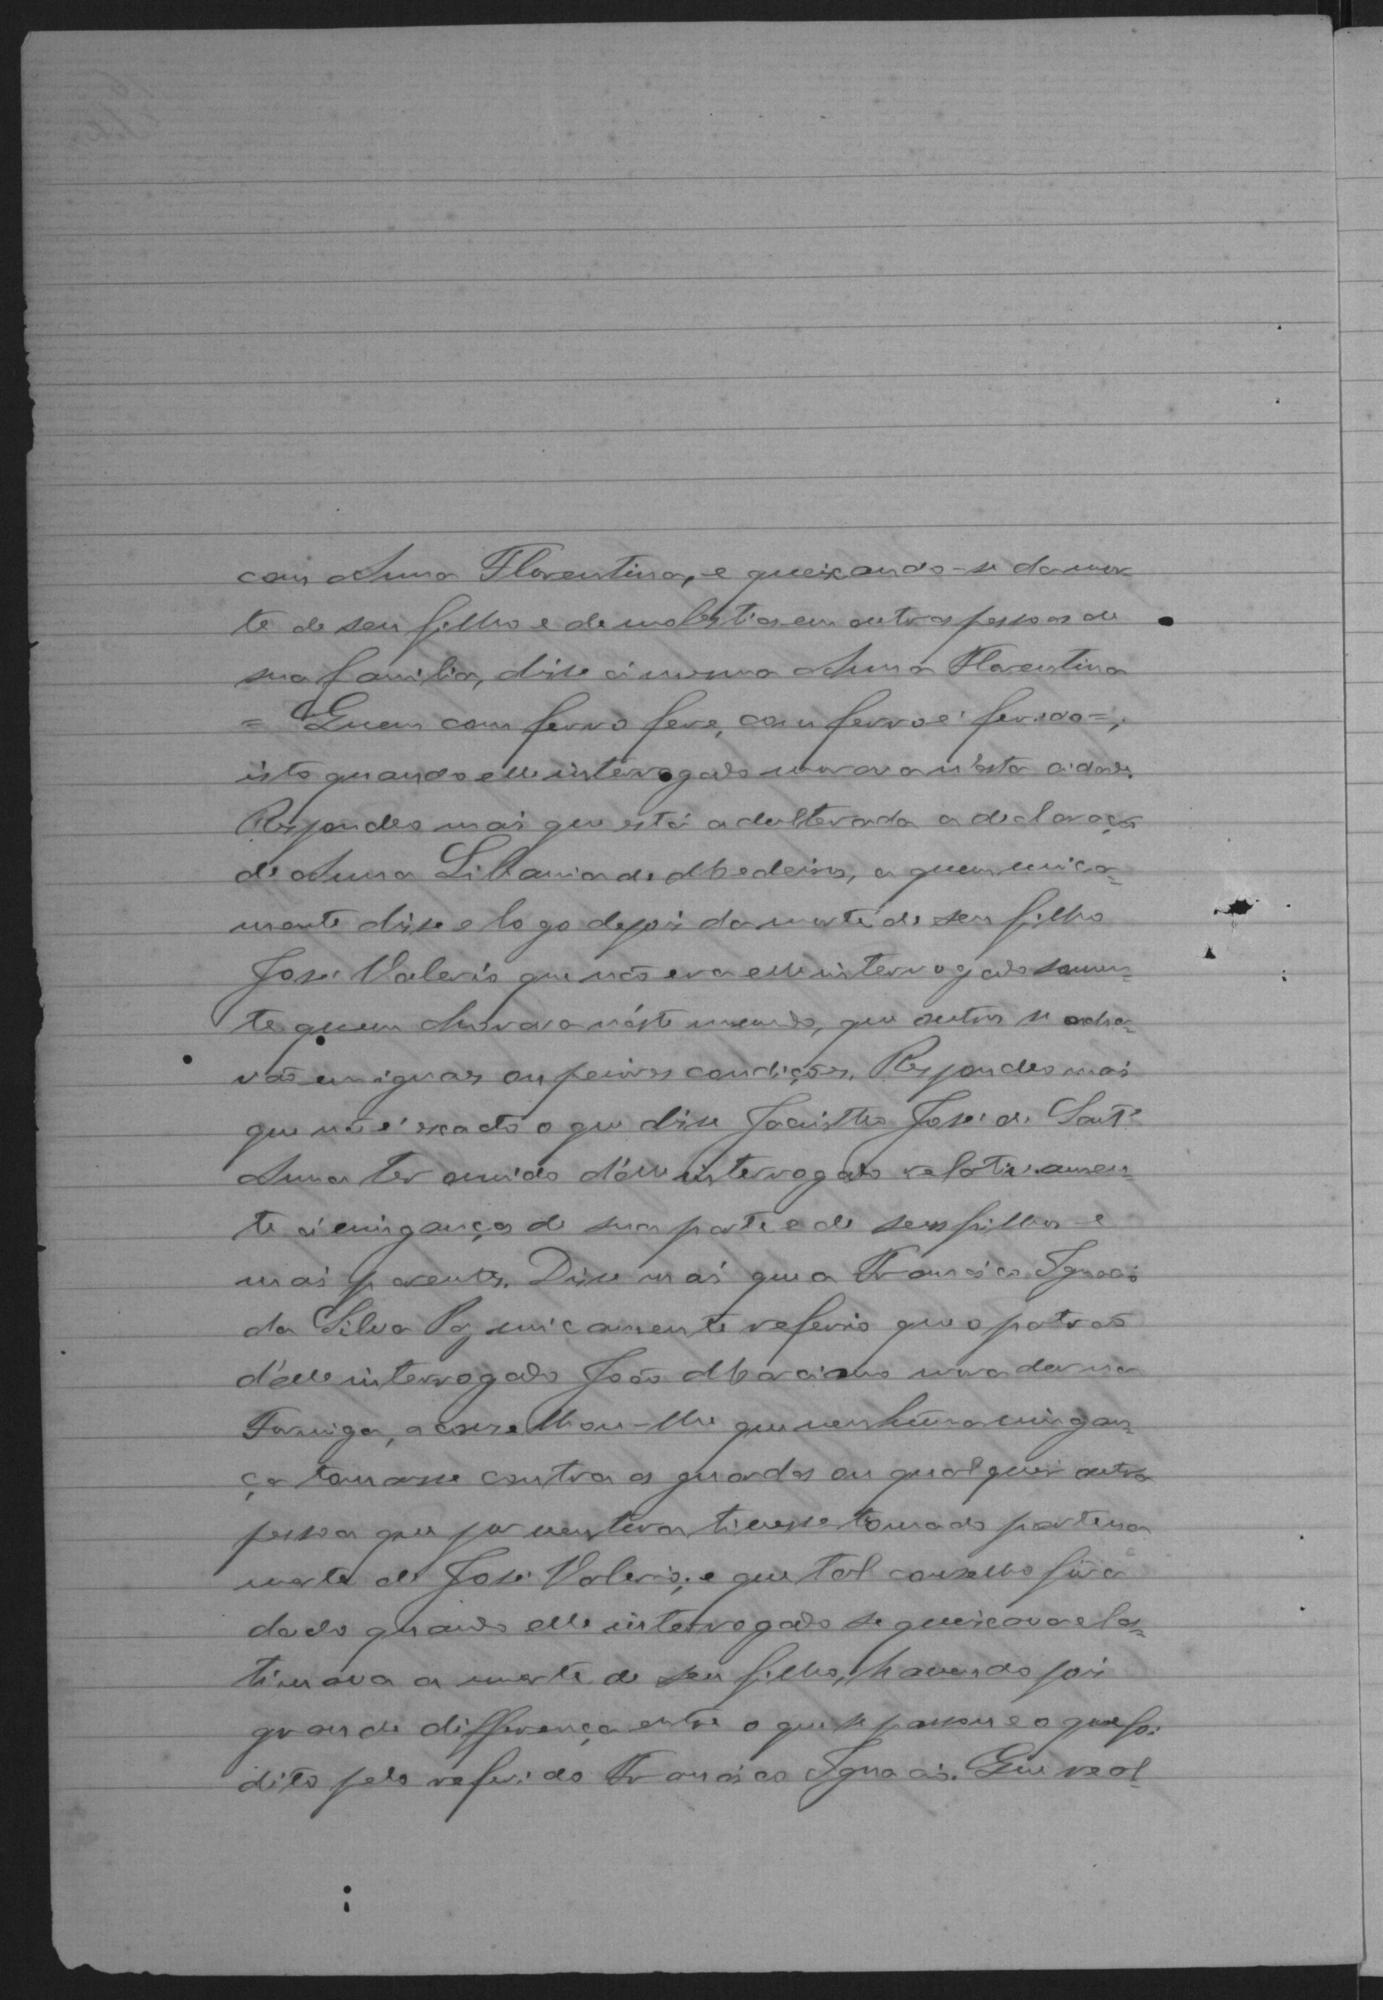 com Anna Florentina, e queixando-se da mor
te de seu filho e de molestias em outras pessoas de
sua familia, disse á mesma Anna Florentina
= Quem com ferro fere, com ferro é ferido =,
isto quando elle interrogado morava n'esta cidade.
Respondeo mais que está adulterada a declaração
de Anna Libania de Medeiros, a quem unica=
mente disse e logo depois da morte de seu filho
José Valerio que não era elle interrogado somen=
te quem chorava néste mundo, que outros se acha=
vão em iguaes ou peiores condições. Respondeo mais
que não é exacto o que disse Jacintho José de Sant'
Anna ter ouvido d'elle interrogado relativamen=
te á vingança de sua parte e de seus filhos e
mais parentes. Disse mais que a Francisco Ignacio
da Silva Paz unicamente referio que o patrão
d'elle interrogado João Marciano morador na
Formiga, aconselhou-lhe que nenhuma vingan=
ça tomasse contra os guardas ou qualquer outra
pessoa que por ventura tivesse tomado parte na
morte de José Valerio; e que tal conselho fôra
dado quando elle interrogado se queixava e las=
timava a morte de seu filho, havendo pois
grande differença entre o que se passou e o que foi
dito pelo referido Francisco Ignacio. Que real=